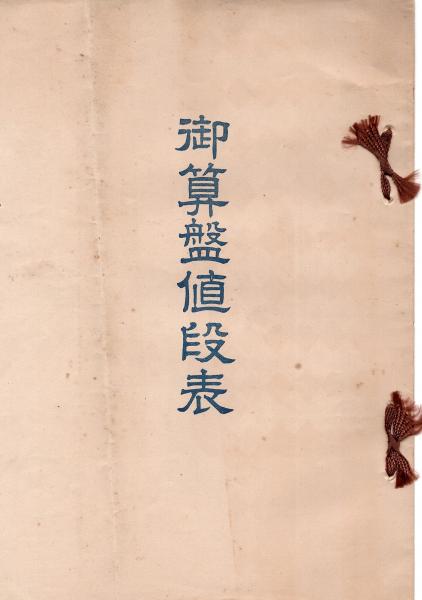 御算盤値段表